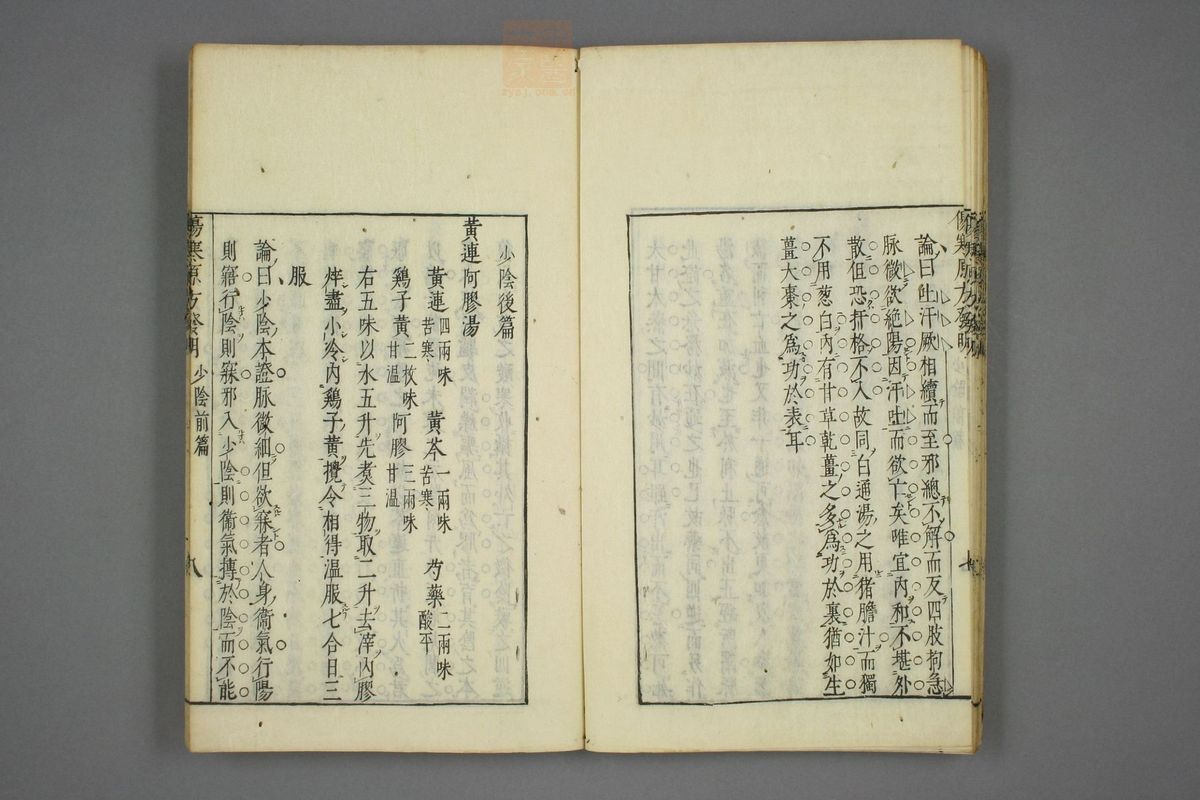 傷寒原方發明
論曰吐汗厥相續而至邪總不解而反四肢拘急
脉微欲絶陽因汗吐而欲亡矣唯宜内和不堪外
散但恐扞格不入故同白通湯之用猪膽汁而獨
不用葱白内有甘草乾薑之多為功於裏猶如生
薑大棗之為功於表耳
少陰後篇
黄連阿膠湯
黄連四兩味苦寒 黄芩一兩味苦寒 芍藥二兩味酸平
鷄子黄二枚味甘温 阿膠三兩味甘温
右五味以水五升先煑三物取二升去滓内膠
烊盡小冷内鷄子黄攪令相得温服七合日三
服
論曰少陰本證脉微細但欲寐者人身衞氣行陽
則寤行陰則寐邪入少陰則衞氣摶於陰而不能
傷寒原方發明 少陰前篇 八
zysj.com.cn